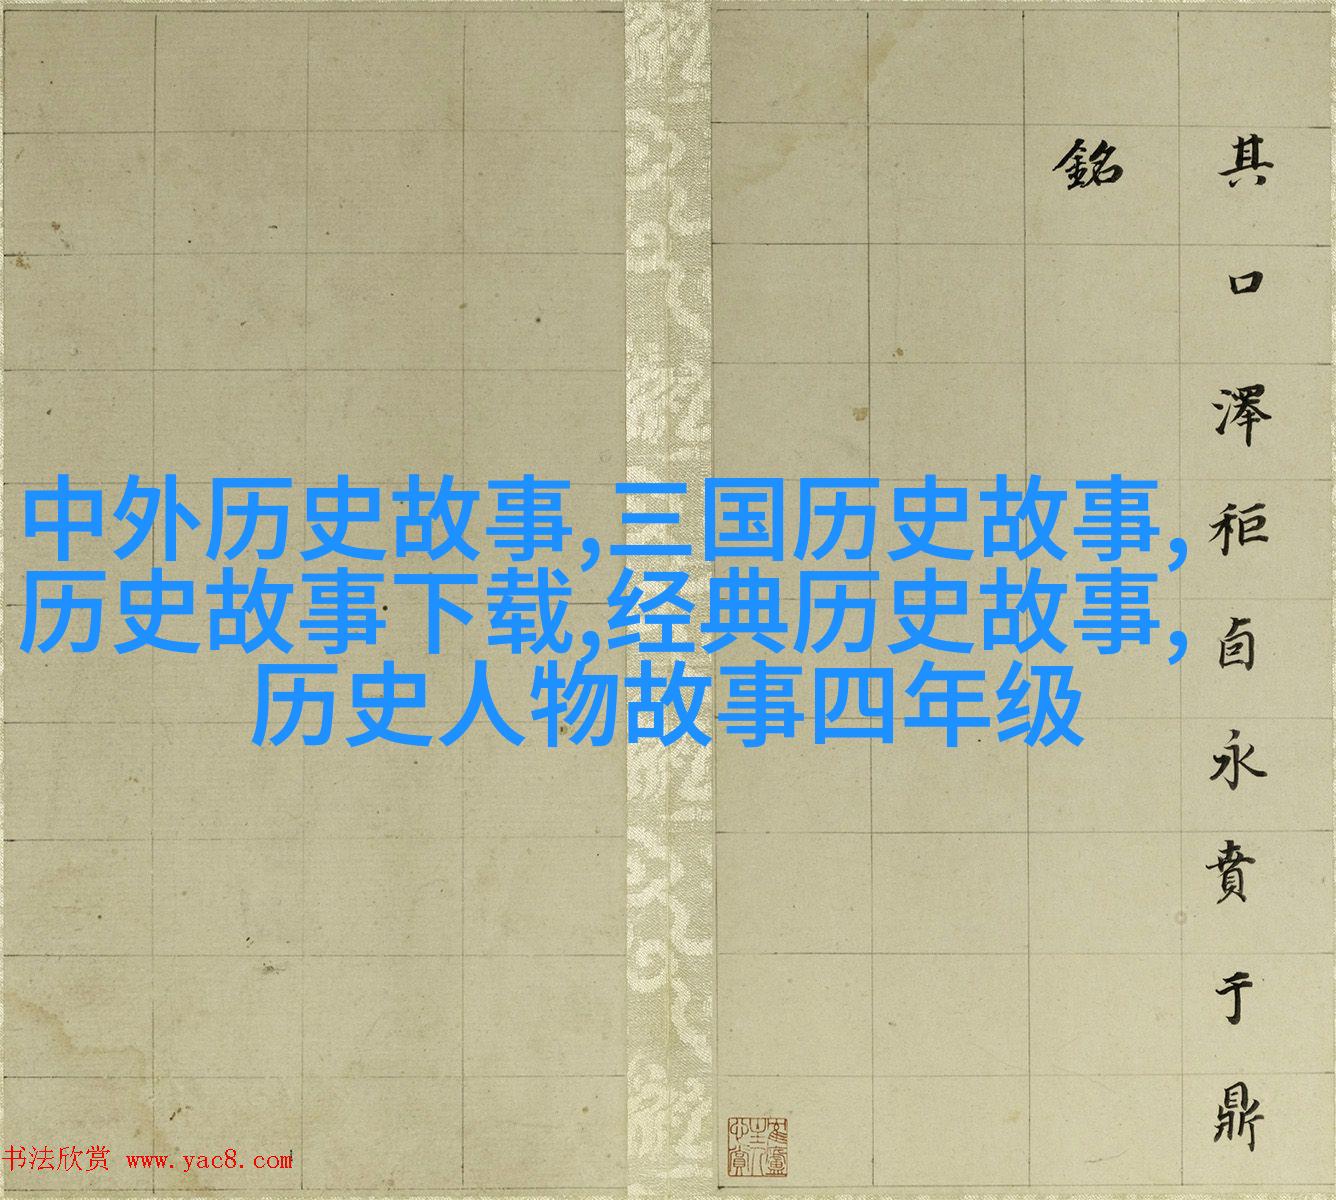 其口澤秬卣永賁于鼎
銘
中外历史故事,三国历史故事,
历史故事下载,经典历史故事,
历史人物故事四年级
书法欣赏 www.yac8.com